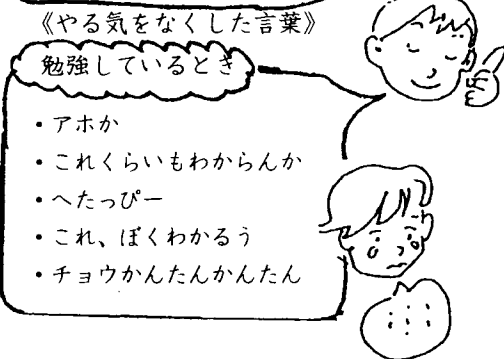 《やる気をなくした言葉》
勉強しているとき
・アホか
・これくらいもわからんか
・へたっぴー
・これ、ぼくわかるう
・チョウかんたんかんたん